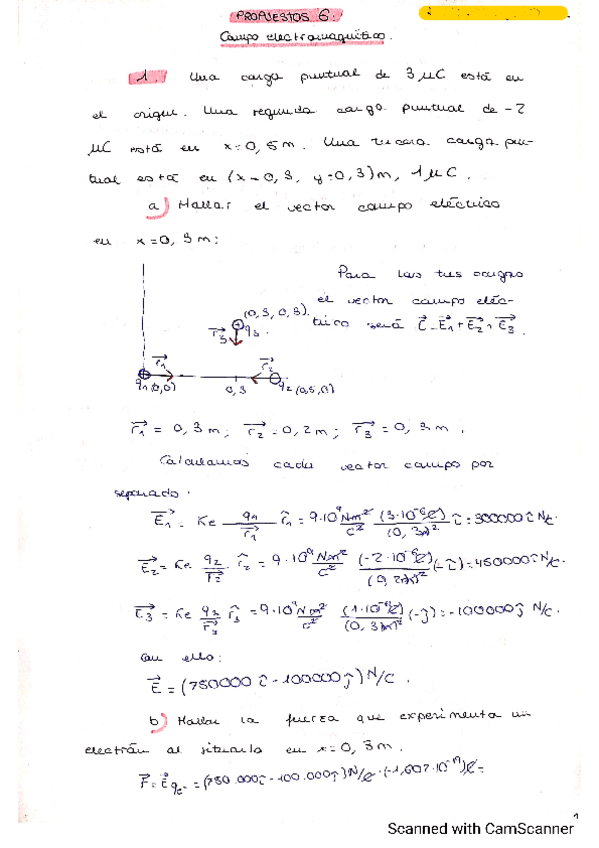 PROPUESTOS 6:
Campo electromagnético.
1. Una carga puntual de 3 μC está en
el origen. Una segunda carga puntual de -2
μC está en x=0,5m. Una tercera carga pun-
tual está en (x=0,3, y=0,3)m, 1μC.
a) Hallar el vector campo eléctrico
en x=0,3m:
Para las tres cargas
el vector campo eléc-
trico será E⃗=E⃗1+E⃗2+E⃗3.
(0,3,0,3).
r⃗3 q3
r⃗1 r⃗2
q1(0,0) 0,3 q2(0,5,0)
r⃗1 = 0,3m; r⃗2=0,2m; r⃗3=0,3m.
Calculamos cada vector campo por
separado.
E⃗1= Ke q1/r⃗1 r̂1 = 9·10⁹ Nm²/C² (3·10⁻⁶C)/(0,3m)² î = 300000 î N/C.
E⃗2= Ke q2/r⃗2 r̂2 = 9·10⁹ Nm²/C² (-2·10⁻⁶C)/(0,2m)² (-î) = 450000 î N/C.
E⃗3 = Ke q3/r⃗3 r̂3 = 9·10⁹ Nm²/C² (1·10⁻⁶C)/(0,3m)² (-ĵ) = -100000 ĵ N/C.
Con ello:
E⃗ = (750000 î - 100000 ĵ) N/C.
b) Hallar la fuerza que experimenta un
electrón al situarlo en x=0,3m.
F⃗=E⃗qe- = (750.000î - 100.000ĵ) N/C · (-1,602·10⁻¹⁹)C =
1
Scanned with CamScanner